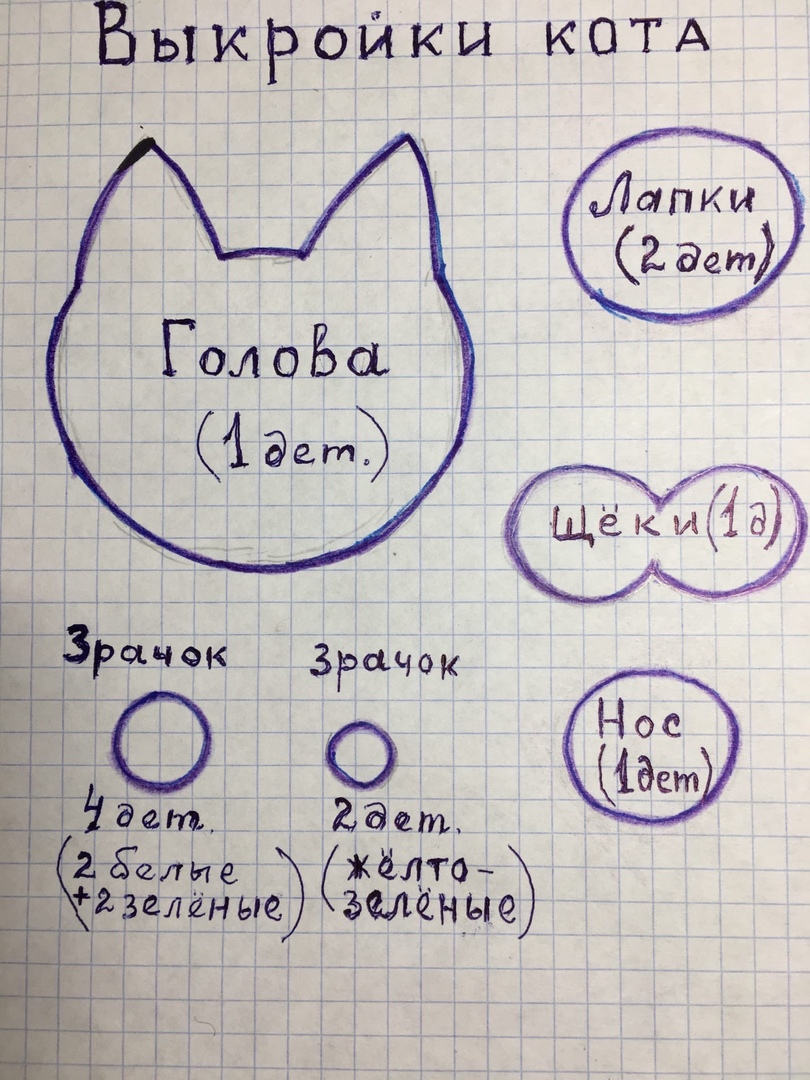 Выкройки кота
Лапки
(2 дет)
Голова
(1 дет.)
Щёки (1 д)
Зрачок
4 дет.
(2 белые
+2 зелёные)
Зрачок
2 дет.
(жёлто-
зелёные)
Нос
(1 дет)